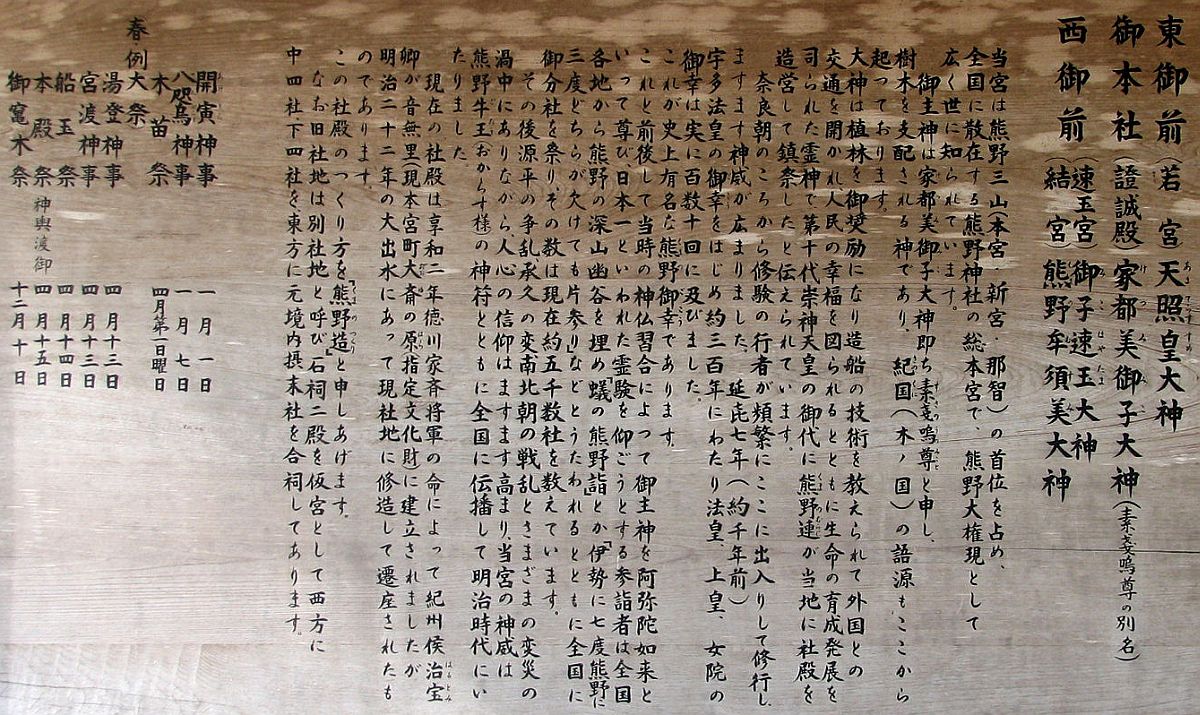 東御前(若宮)天照皇大神
御本社(證誠殿)家都美御子大神(素戔嗚尊の別名)
西御前(速玉宮)御子速玉大神
(結宮)熊野牟須美大神
当宮は熊野三山(本宮・新宮・那智)の首位を占め、
全国に散在する熊野神社の総本宮で、熊野大権現として
広く世に知られています。
御主神は家都美御子大神即ち素戔嗚尊と申し、
樹木を支配される神であり、紀国(木ノ国)の語源もここから
起っております。
大神は植林を御奨励になり造船の技術を教えられて外国との
交通を開かれ、人民の幸福を図られるとともに生命の育成発展を
司られた霊神で第十代崇神天皇の御代に熊野連が当地に社殿を
造営して鎮祭したと伝えられています。
奈良朝のころから修験の行者が頻繁にここに出入りして修行し、
ますます神威が広まりました、延㐂七年(約千年前)
宇多法皇の御幸をはじめ約三百年にわたり法皇、上皇、女院の
御幸は実に百数十回に及びました。
これが史上有名な熊野御幸であります。
これと前後して当時の神仏習合によって御主神を阿弥陀如来と
いって尊び「日本一」といわれた霊験を仰ごうとする参詣者は全国
各地から熊野の深山幽谷を埋め「蟻の熊野詣」とか「伊勢に七度熊野に
三度どちらが欠けても片参り」などとうたわれるとともに全国に
御分社を祭り、その数は現在約五千数社を数えています。
その後源平の争乱承久の変南北朝の戦乱とさまざまの変災の
渦中にありながら人心の信仰はますます高まり、当宮の神威は
熊野牛王(おからす様の神符)とともに全国に伝播して明治時代にい
たりました
現在の社殿は享和二年徳川家斉将軍の命によって紀州侯治宝
卿が音無里(現本宮町大斎の原指定文化財)に建立されましたが
明治二十二年の大出水にあって現社地に修造して遷座されたも
のであります。
この社殿のつくり方を「熊野造」と申しあげます。
なお旧社地は別社地と呼び石祠二殿を仮宮として西方に
中四社、下四社を東方に元境内摂末社を合祠してあります。
開寅神事 一月一日
八咫烏神事 一月七日
木苗祭 四月第一日曜日
春例大祭
湯登神事 四月十三日
宮渡神事 四月十三日
船玉祭 四月十四日
本殿祭 神輿渡御 四月十五日
御竃木祭 十二月十日